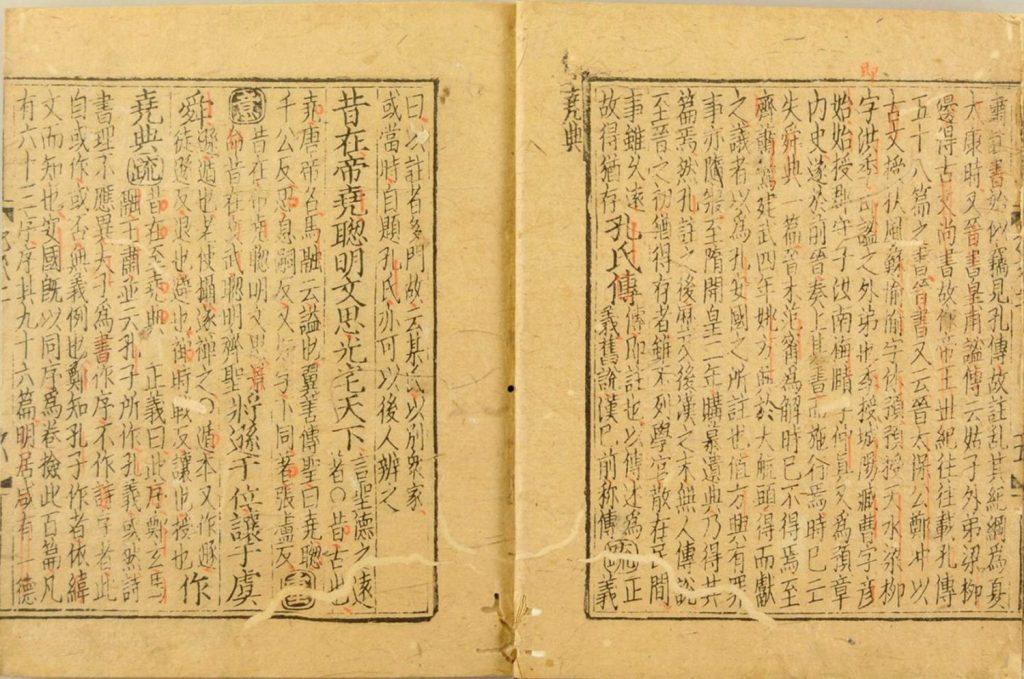 肅註書始似竊見孔傳故註亂其紀綱為夏
大康時又晉書皇甫謐傳云姑子外弟梁柳
邊得古文尚書故作帝王世紀往往載孔傳
五十八篇之書晉書又云晉太保公鄭冲以
古文授扶風蘇愉愉字休預預授天水梁柳
字洪季即謐之外弟也季授城陽臧曹字彥
始始授郡守子汝南梅賾字仲真又為豫章
內史遂於前晉奏上其書而施行焉時已亡
失舜典一篇晉末范甯為解時已不得焉至
齊蕭鸞建武四年姚方興於大航頭得而獻
之議者以為孔安國之所註也值方興有罪
事亦隨寢至隋開皇二年購募遺典乃得其
篇焉然孔註之後歷及後漢之末無人傳說
至晉之初猶得存者雖不列學官散在民間
事雖久遠故得猶存
孔氏傳
傳即註也以傳述為義舊說漢已前稱傳
疏
正義
堯典
曰以註者多門故云某氏以別眾家
或當時自題孔氏亦可以後人辨之
昔在帝堯聰明文思光宅天下
言聖德之遠著○昔古也
堯唐帝名馬融云謚也翼善傳聖曰堯聰
千公反思息嗣反又如字下同著張慮反
意
昔在帝堯聰明文思
將遜于位讓于虞
舜
遜遁也老使攝遂禪之○遁本又作遯
徒遜反退也避也禪時戰反讓也授也
作
堯典
疏
昔在至堯典 正義曰此序鄭玄馬
融王肅並云孔子所作孔義或然詩
書理不應異夫子為書作序不作詩序者此
自或作或否無義例也鄭知孔子作者依緯
文而知也安國既以同序為卷檢此百篇凡
有六十三序序其九十六篇明居咸有一德